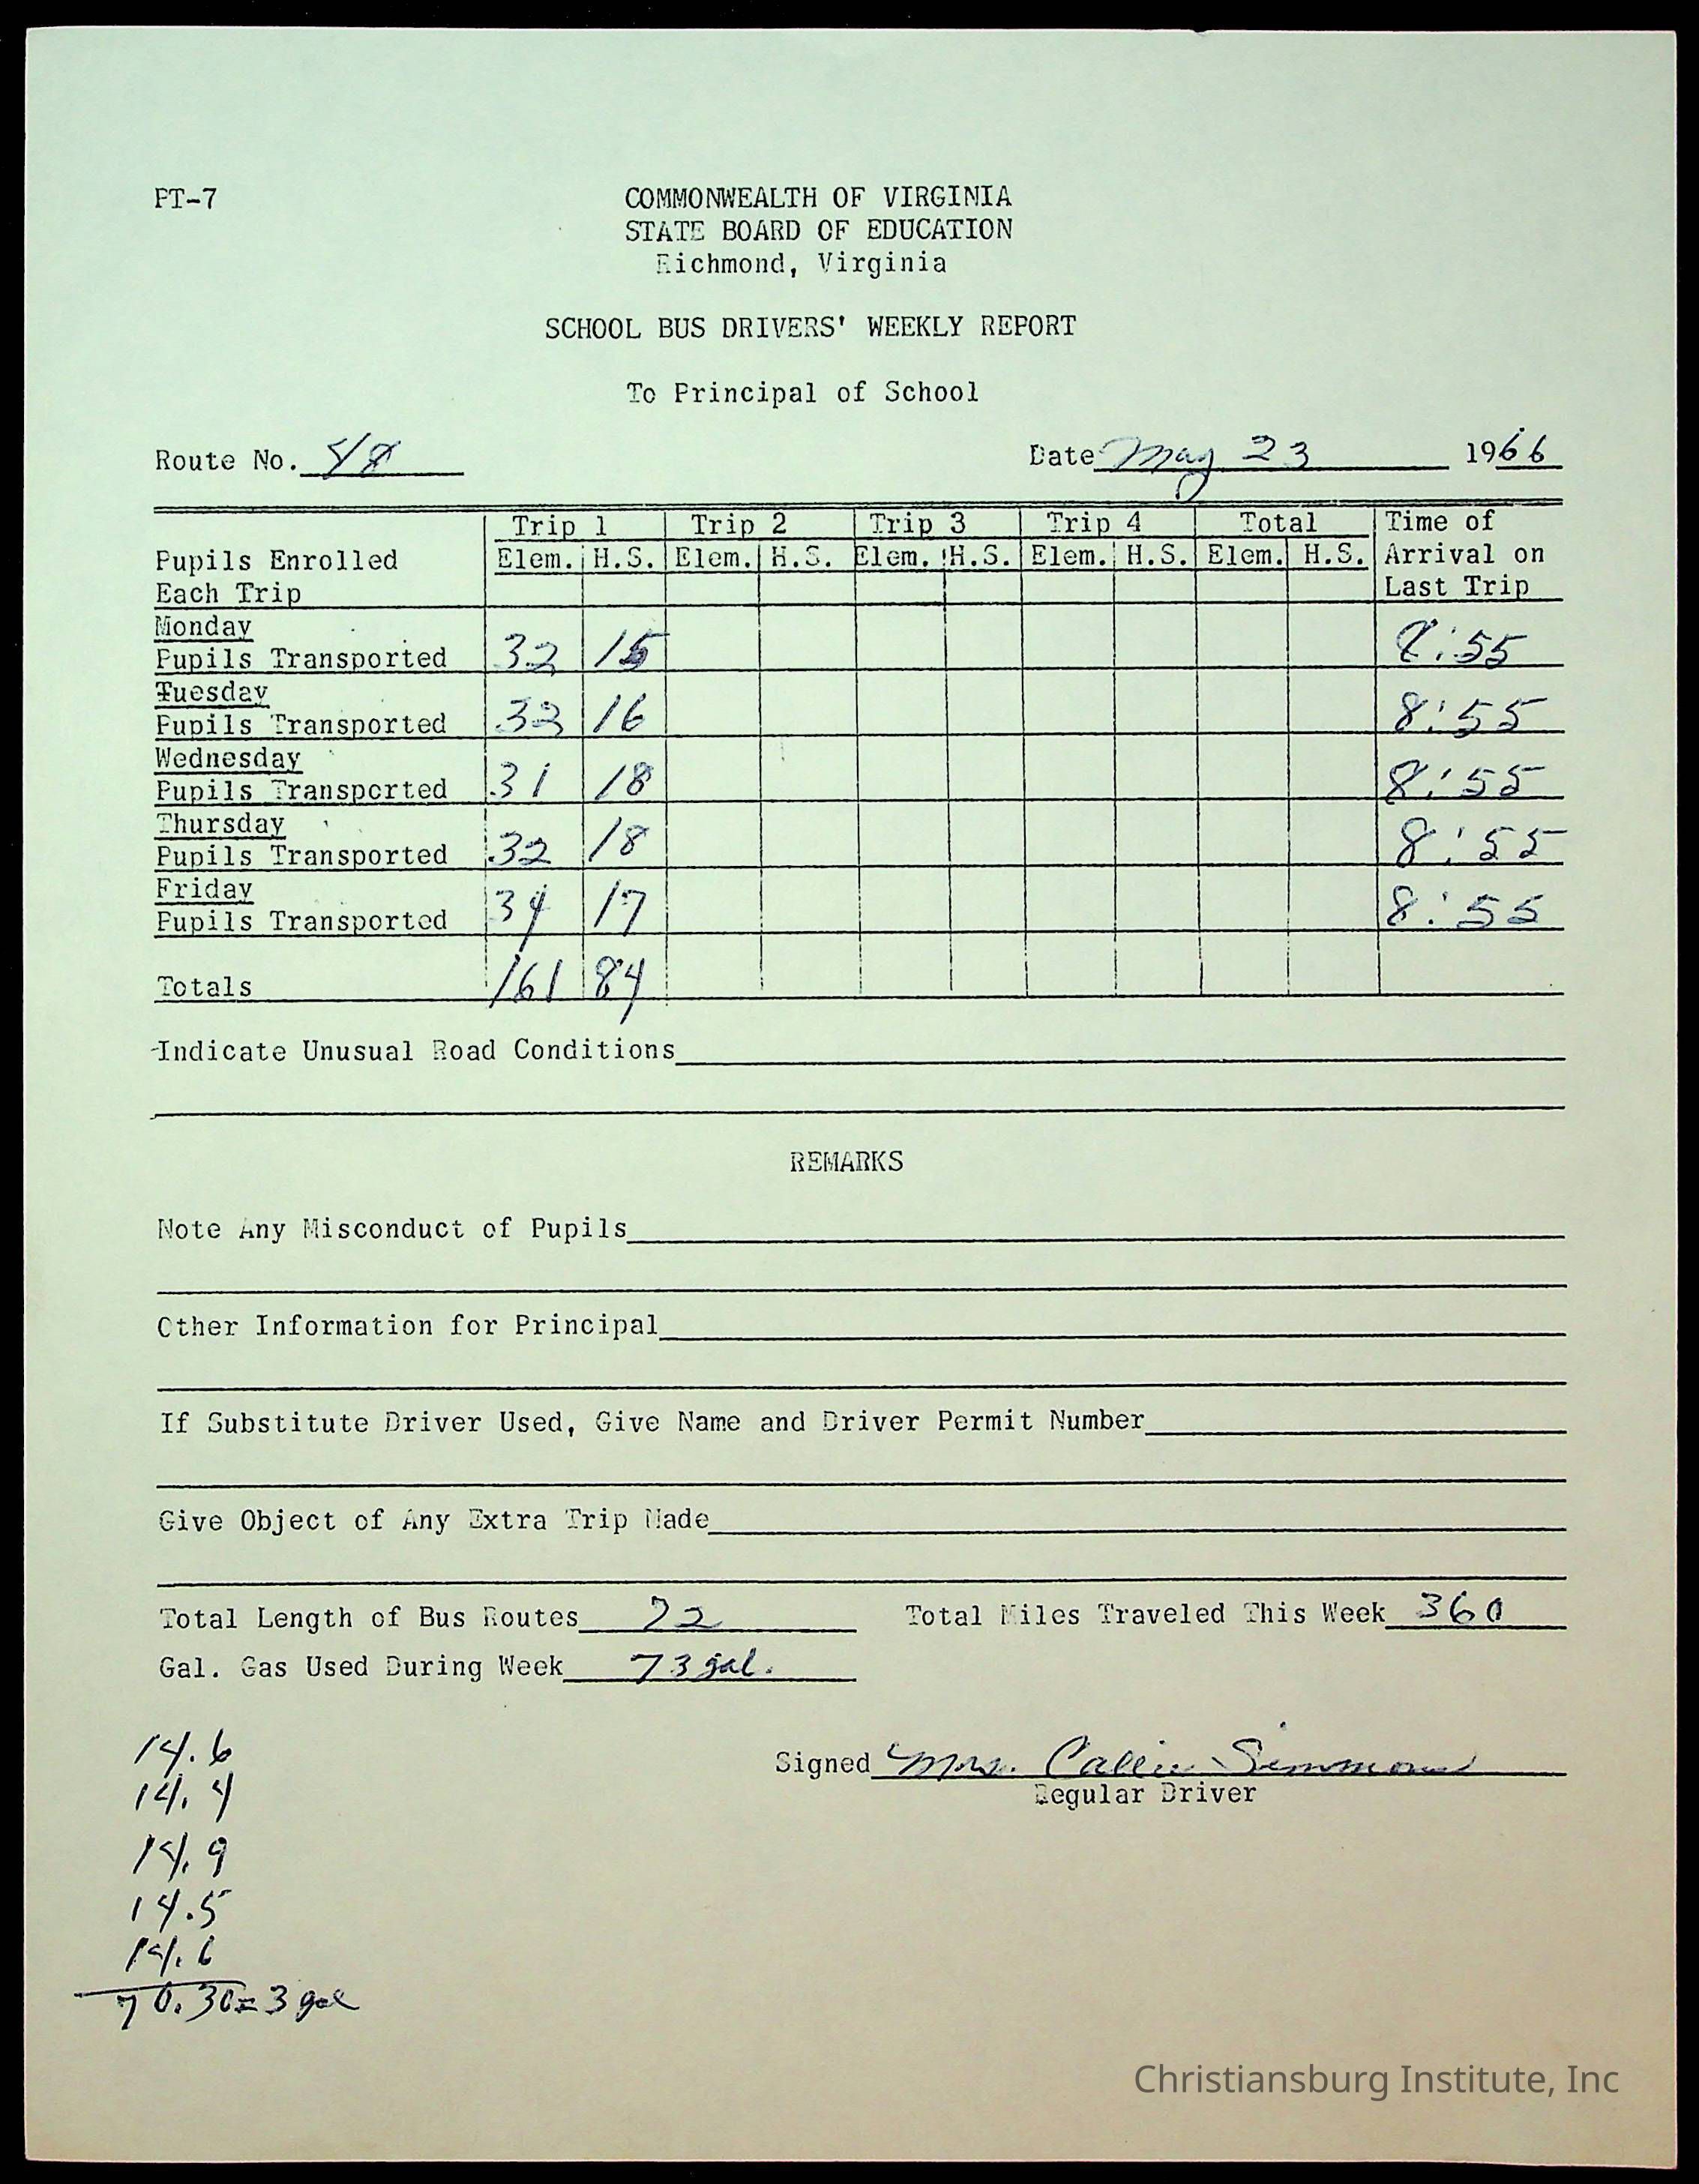 PT-7
COMMONWEALTH OF VIRGINIA
STATE BOARD OF EDUCATION
Richmond, Virginia
SCHOOL BUS DRIVERS' WEEKLY REPORT
To Principal of School
Route No. 48 Date May 23 1966
Trip 1 Trip 2 Trip 3 Trip 4 Total Time of
Pupils Enrolled Elem. H.S. Elem. H.S. Elem. H.S. Elem. H.S. Elem. H.S. Arrival on
Each Trip Last Trip
Monday
Pupils Transported 32 15 8:55
Tuesday
Pupils Transported 32 16 8:55
Wednesday
Pupils Transported 31 18 8:55
Thursday
Pupils Transported 32 18 8:55
Friday
Pupils Transported 34 17 8:55
Totals 161 84
Indicate Unusual Road Conditions
REMARKS
Note Any Misconduct of Pupils
Other Information for Principal
If Substitute Driver Used, Give Name and Driver Permit Number
Give Object of Any Extra Trip Made
Total Length of Bus Routes 72 Total Miles Traveled This Week 360
Gal. Gas Used During Week 73 gal.
14.6
Signed Mrs. Callie Simmons
14.4
Regular Driver
14.9
14.5
14.6
70.30=3 gal
Christiansburg Institute, Inc